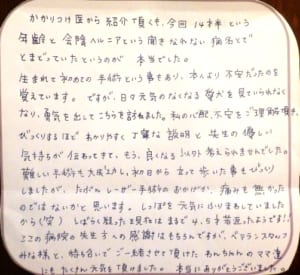 かかりつけ医から紹介頂くも、今回14才半という
年齢と会陰ヘルニアという聞きなれない病名とで
とまどっていたというのが本当でした。
生まれて初めての手術という事もあり、本人より不安だったのを
覚えています。ですが、日々元気のなくなる愛犬を見ていられなく
なり、勇気を出してこちらを訪ねました。私の心配、不安をご理解頂き、
びっくりするほどわかりやすく丁寧な説明と先生の優しい
気持ちが伝わってきて、もう、良くなるしかないと考えられませんでした。
難しい手術も大成功し、初日から立って歩いた事もびっくり
しましたが、たぶんレーザー手術のおかげか、痛みも無かった
のではないかと思います。しっぽを元気にふりまわしていました
から(笑) しばらく経った現在はまるで4、5才若返ったようです!!
ここの病院の先生方への感謝はもちろんですが、ベテランスタッフ
みな様と、待合いでご一緒させて頂けたわんちゃんのママ達
にもたくさん元気を頂けました。本当にありがとうございました。